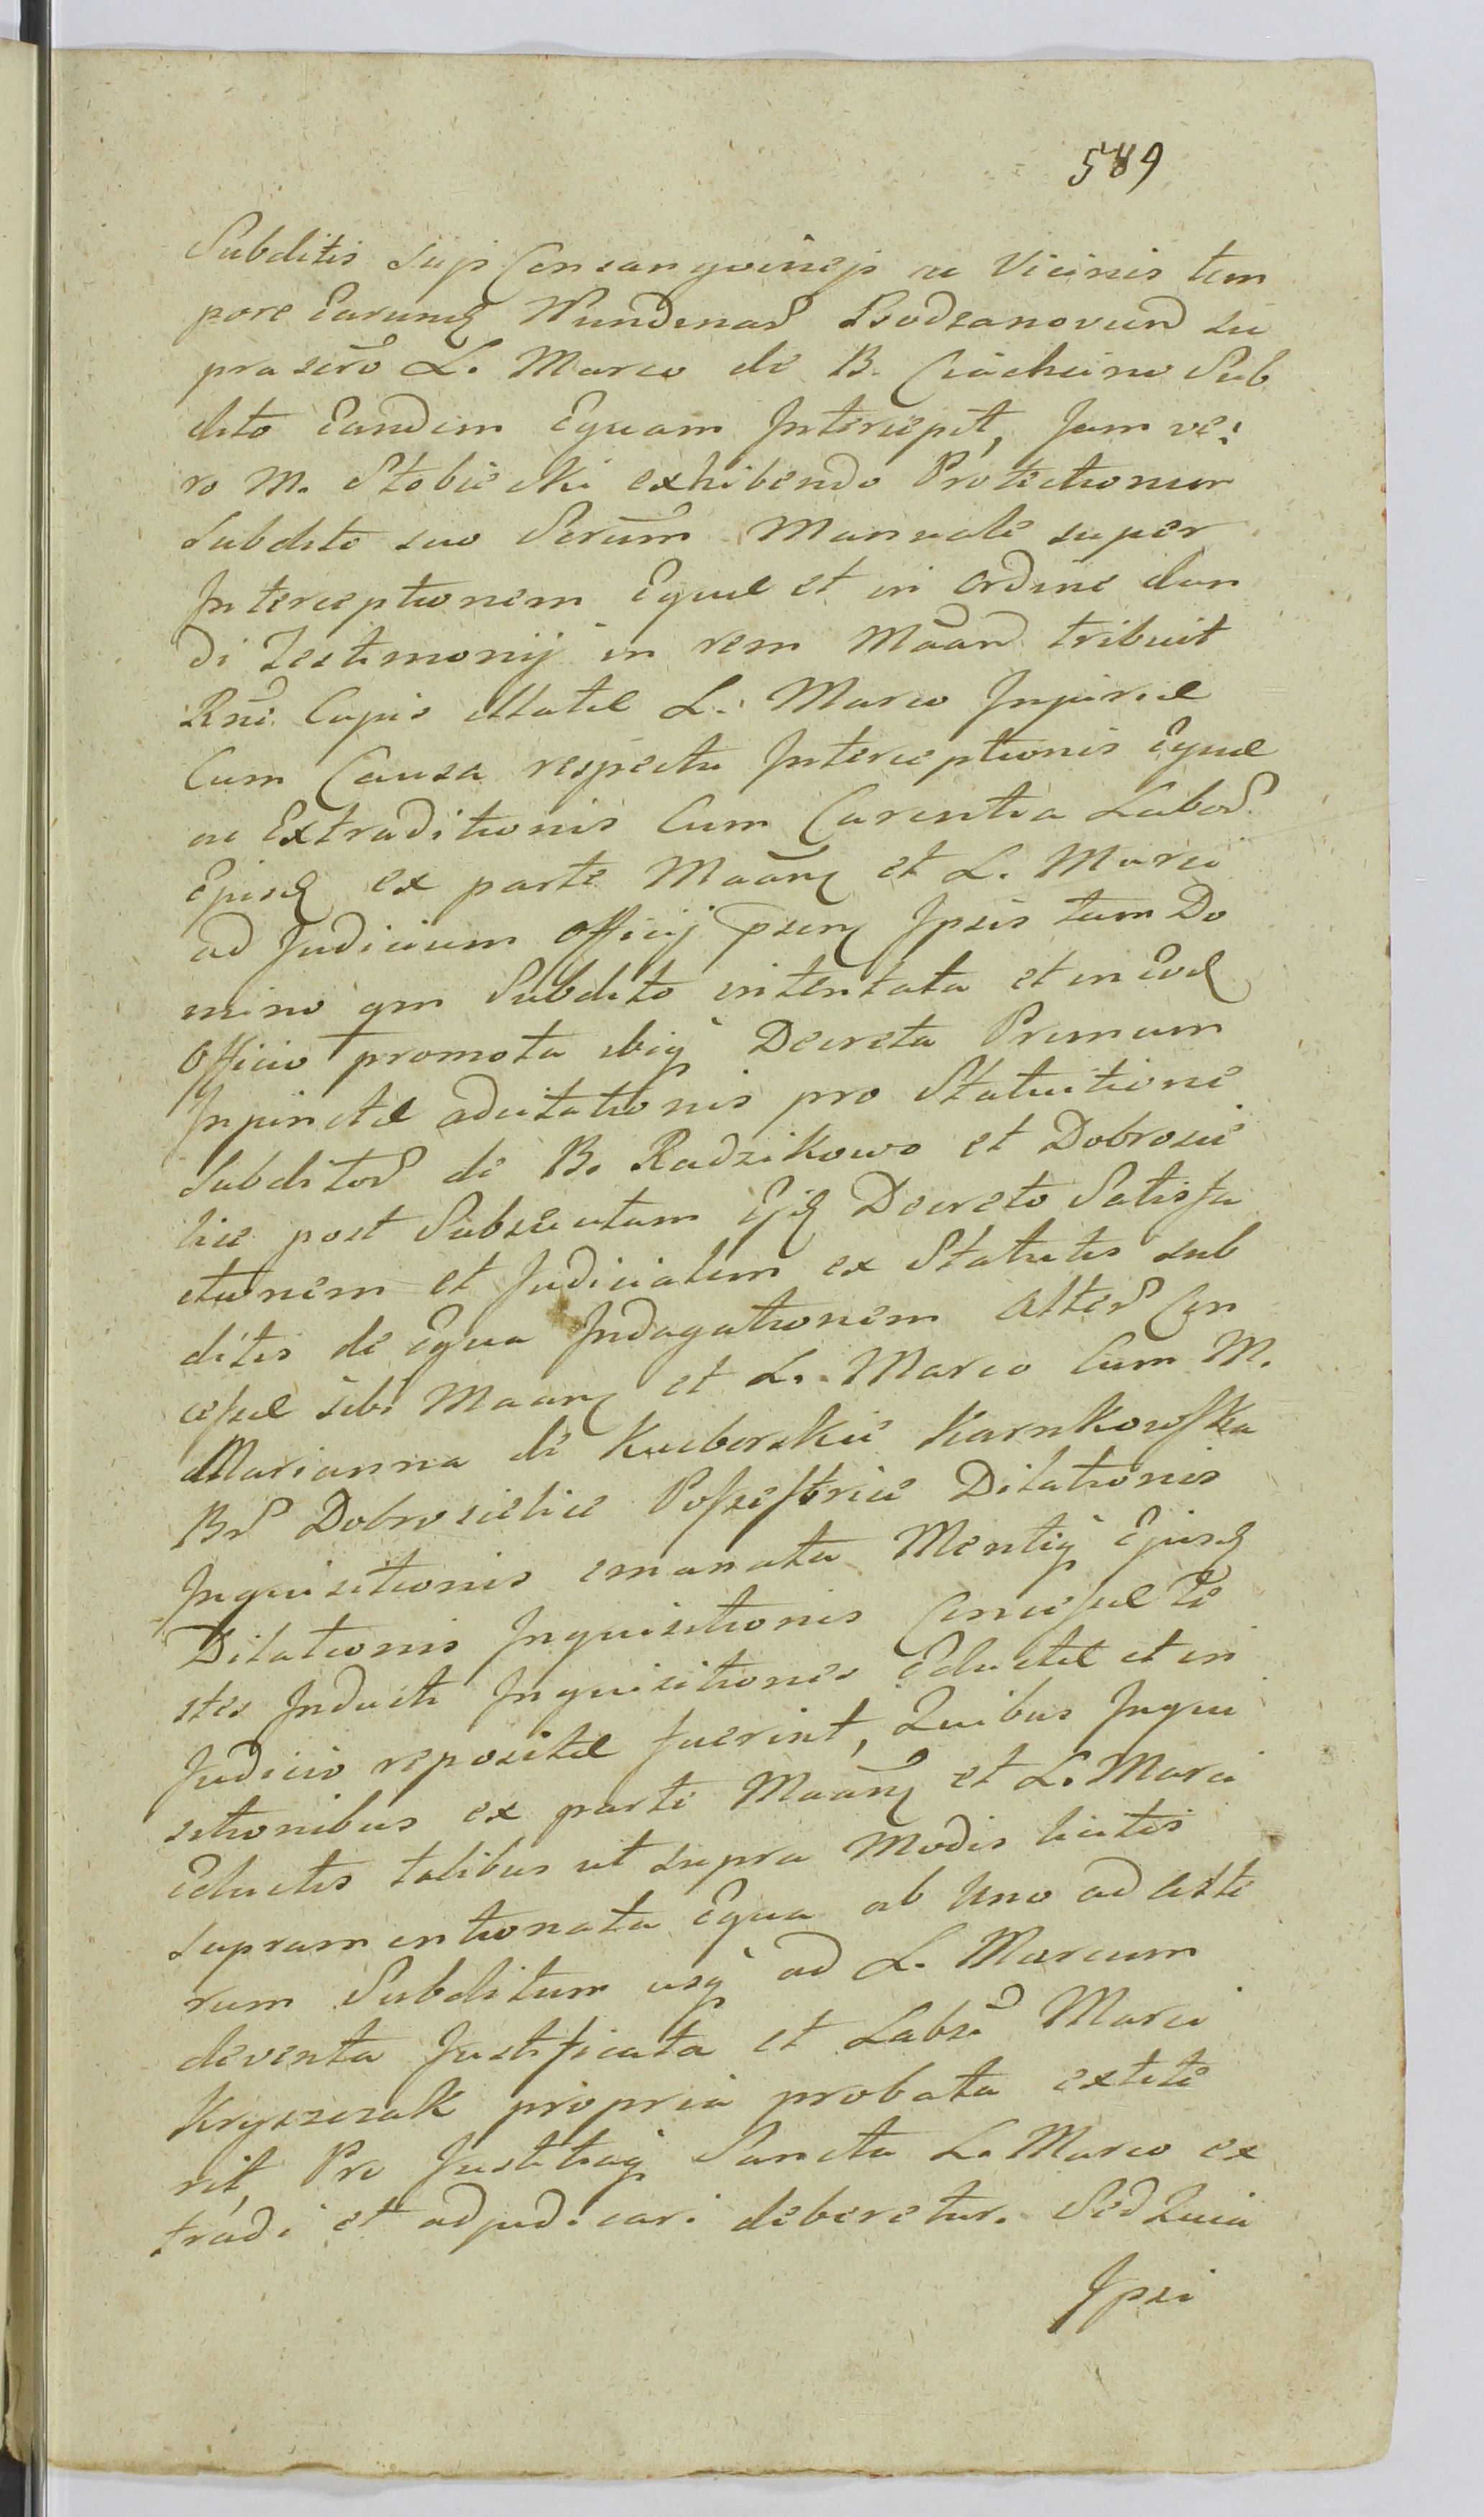 589
Subditis suis Consangvineis ac Vicinis tem
pore Earund Nundinar Bodzanovien su
prascro L. Marco de B. Ciachcino Sub
dito Eandem Equam Intercepit, Jam ve:
ro M. Stobiecki exhibendo Protectionem
Subdito suo Scrum Manuale super
Interceptionem Equæ et in ordine dan
di Testimonij in rem Maan tribuit
Rne Cujus Motæ L. Marco Injuriæ
Cum Causa respectu Interceptionis Equæ
ac Extraditionis Cum Carentia Labor
Ejusd ex parte Maang et L. Marci
ad Judicium Officij psens Ipsis tam Do
mino qm Subdito intentata et in Eod
Officio promota ibiq Decreta Primum
Injunctæ adcitationis pro Statuitione
Subditor de B. Radzikowo et Dobrosie
lice post Subsecutam Ejd Decreto Satisfa
ctionem et Judicialem ex Statutis sub
ditis de Equa Indagationem Alter Con
cessæ sibi Maang et L. Marco Cum M.
Marianna de Kuiborskie Karnkowska
Br Dobrosielice Possessorice Dilationis
Inquisitionis emanata Mentiq Ejusd
Dilationis Inquisitionis Concessæ Te
stes Inducti Inquisitiones Eductæ et in
Judicio repositæ fuerint, Quibus Inqui
sitionibus ex parte Maang et L. Marci
Eductis talibus ut supra Modis licitis
supramentionata Equa ab Uno ad Alte
rum Subditum usq ad L. Marcum
deventa Justificata et Labsi Marci
Kryszczak propria probata extite
rit, Pro Justitiaq Sancta L. Marco ex
tradi et adjudicari deberetur. Sed Quia
Ipsi